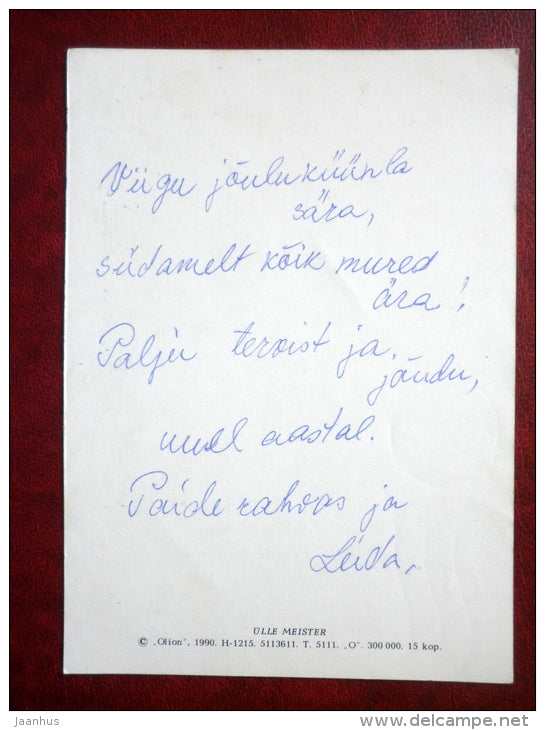 Viigu jõuluküünla
sära,
südamelt kõik mured
ära!
Palju tervist ja
jõudu,
uuel aastal.
Paide rahvas ja
Leida.
ÜLLE MEISTER
© „Olion", 1990. H-1215. 5113611. T. 5111. „O". 300 000. 15 kop.
jaanhus
www.delcampe.net